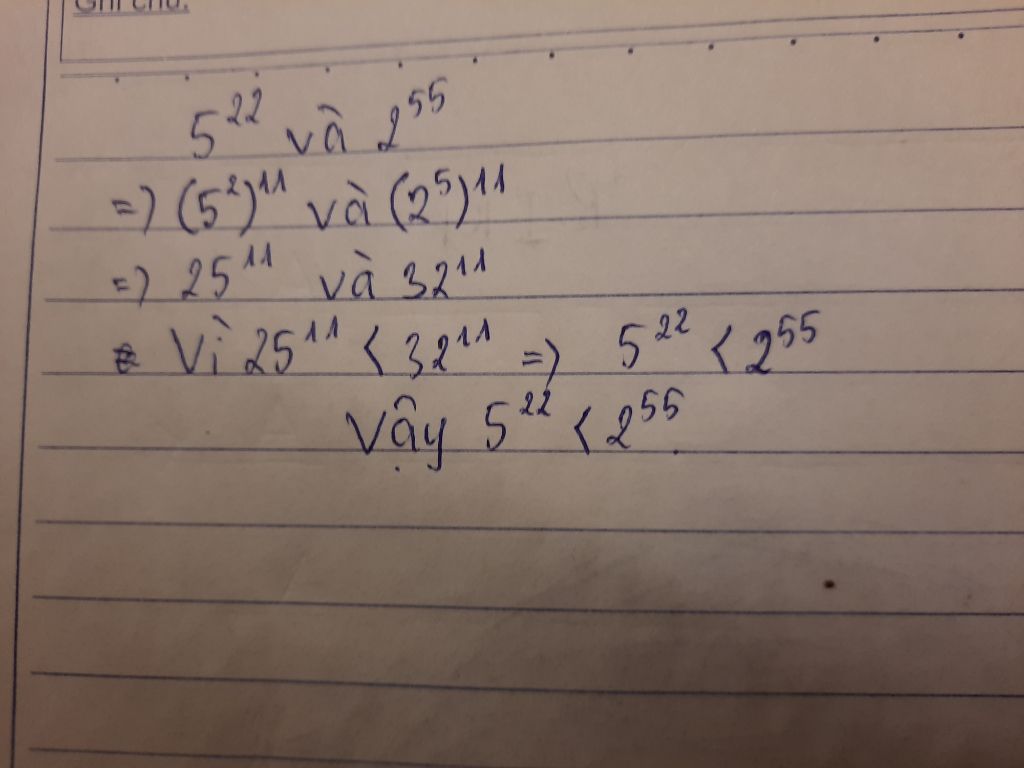 Ghi chú:
5²² và 2⁵⁵
=) (5²)¹¹ và (2⁵)¹¹
=) 25¹¹ và 32¹¹
Vì 25¹¹ < 32¹¹ =) 5²² < 2⁵⁵
Vậy 5²² < 2⁵⁵.